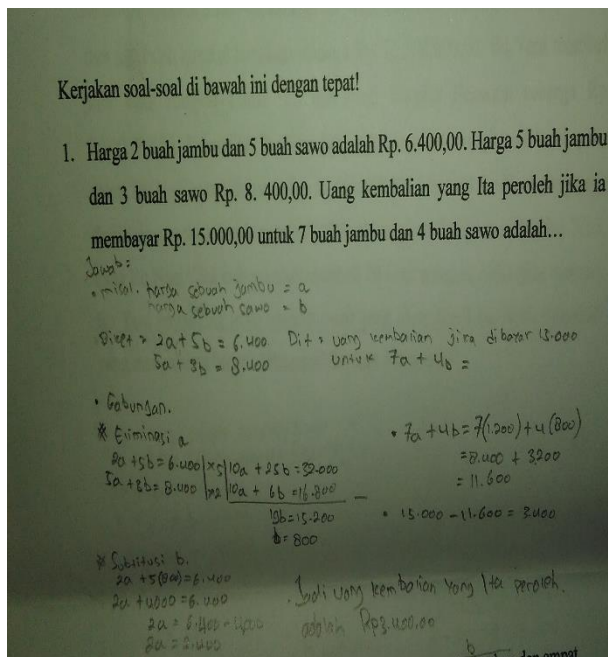 Kerjakan soal-soal di bawah ini dengan tepat!
1. Harga 2 buah jambu dan 5 buah sawo adalah Rp. 6.400,00. Harga 5 buah jambu
dan 3 buah sawo Rp. 8. 400,00. Uang kembalian yang Ita peroleh jika ia
membayar Rp. 15.000,00 untuk 7 buah jambu dan 4 buah sawo adalah...
Jawab:
• misal. harga sebuah jambu = a
harga sebuah sawo = b
Diket > 2a + 5b = 6.400
5a + 3b = 8.400
Dit > uang kembalian jika dibayar 15.000
untuk 7a + 4b =
• Gabungan.
* Eliminasi a
2a + 5b = 6.400 | x5 | 10a + 25b = 32.000
5a + 3b = 8.400 | x2 | 10a + 6b = 16.800 –
19b = 15.200
b = 800
* Subtitusi b.
2a + 5(800) = 6.400
2a + 4000 = 6.400
2a = 6.400 - 4.000
2a = 2.400
• 7a + 4b = 7(1.200) + 4(800)
= 8.400 + 3.200
= 11.600
• 15.000 – 11.600 = 3.400
. Jadi uang kembalian yang Ita peroleh.
adalah Rp3.400.00
b
dan empat